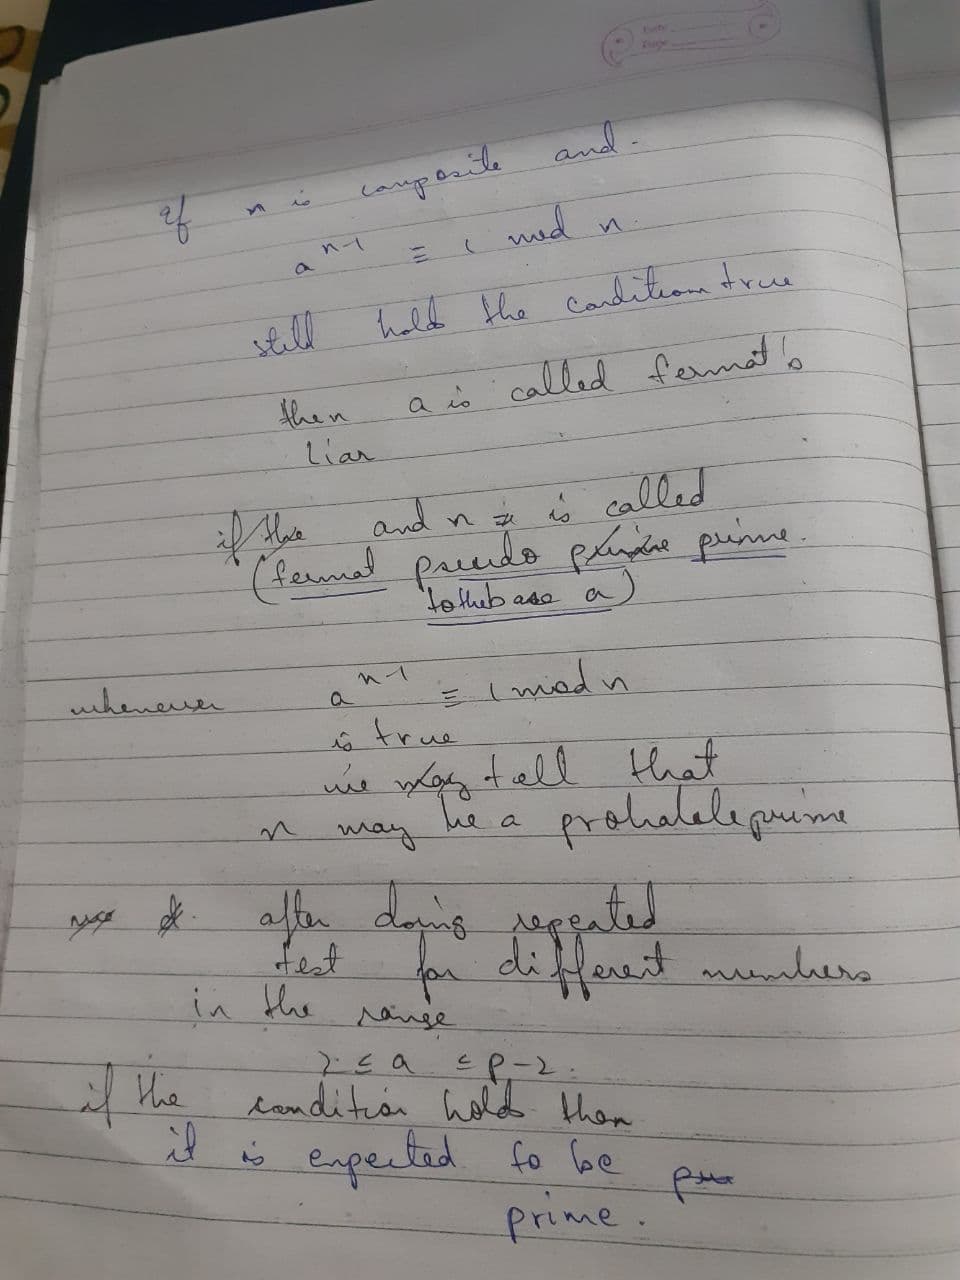 Date
Page
if n is composite and -
a^n-1 ≡ 1 mod n.
still hold the condition true
then a is called fermat's
liar
if the and n is called
(fermat pseudo prime.
to the base a)
whenever a^n-1 ≡ 1 mod n
is true
we may tell that
n may be a probable prime
after doing repeated
test for different numbers
in the range
2 ≤ a ≤ p-2.
if the condition holds then
it is expected to be
prime.